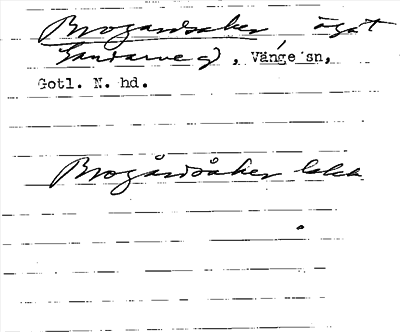 Brogårdsåker ägot
Sandarve g), Vänge sn,
Gotl. N. hd.
Brogårdsåker